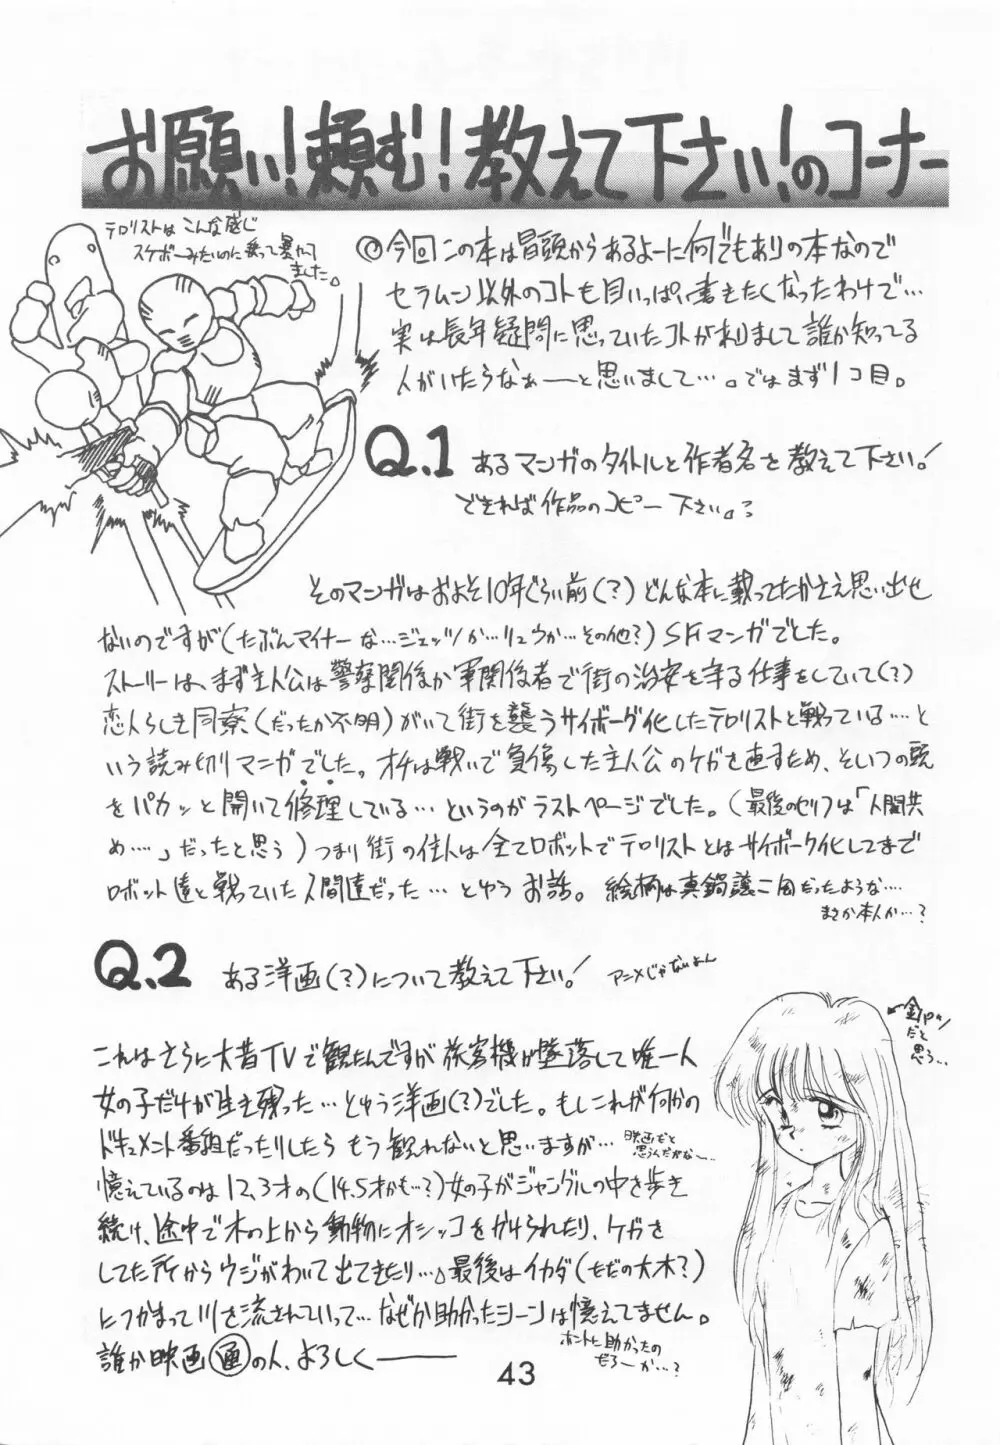 お願い！頼む！教えて下さい！のコーナー
テロリストはこんな感じ
スケボーみたいのに乗って暴れて
ました。
◎今回この本は冒頭からあるよーに何でもありの本なので
セラムン以外のコトも目いっぱい書きたくなったわけで…
実は長年疑問に思っていたコトがありまして誰か知ってる
人がいたらなぁーーと思いまして…。ではまず1コ目。
Q.1 あるマンガのタイトルと作者名を教えて下さい！
できれば作品のコピー下さい。
そのマンガはおよそ10年ぐらい前(？)どんな本に載ってたかさえ思い出せ
ないのですが(たぶんマイナーな…ジェッツか…リュウか…その他？)SFマンガでした。
ストーリーは、まず主人公は警察関係か軍関係者で街の治安を守る仕事をしていて(？)
恋人らしき同寮(だったか不明)がいて街を襲うサイボーグ化したテロリストと戦っている…と
いう読み切りマンガでした。オチは戦いで負傷した主人公のケガを直すため、そいつの頭
をパカッと開いて修理している…というのがラストページでした。(最後のセリフは「人間共
め…」だったと思う)つまり街の住人は全てロボットでテロリストとはサイボーグ化してまで
ロボット達と戦っていた人間達だった…とゆうお話。絵柄は真鍋譲二風だったような…
まさか本人か…？
Q.2 ある洋画(？)について教えて下さい！ アニメじゃないよん
これはさらに大昔TVで観たんですが旅客機が墜落して唯一人
女の子だけが生き残った…とゆう洋画(？)でした。もしこれが何かの
ドキュメント番組だったりしたらもう観れないと思いますが… 映画だと
思うんだがなー…
憶えているのは12,3才の(14.5才かも…？)女の子がジャングルの中を歩き
続け、途中で木の上から動物にオシッコをかけられたり、ケガを
した所からウジがわいて出てきたり…。最後はイカダ(ただの大木？)
につかまって川を流されていって…なぜか助かったシーンは憶えてません。
ホントに助かったの
だろーか…？
誰か映画通の人、よろしくーー
金パツ
だと
思う…
43